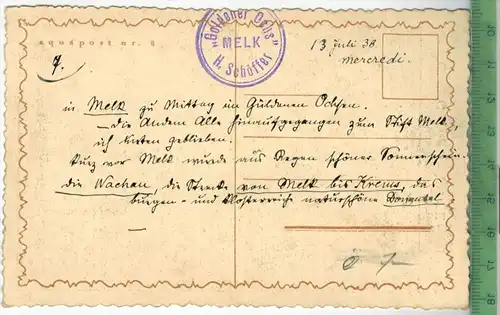 aquapost nr. 8
"Goldener Ochs"
MELK
H. Schöffer
13 Juli 38
mercredi.
7.
in Melk zu Mittag im Guldenen Ochsen.
– die Andern Alle hinaufgegangen zum Stift Melk,
ich unten geblieben.
kurz vor Melk wurde aus Regen schöner Sonnenschein.
die Wachau, die Strecke von Melk bis Krems, das
burgen- und klösterreiche naturschöne Donautal